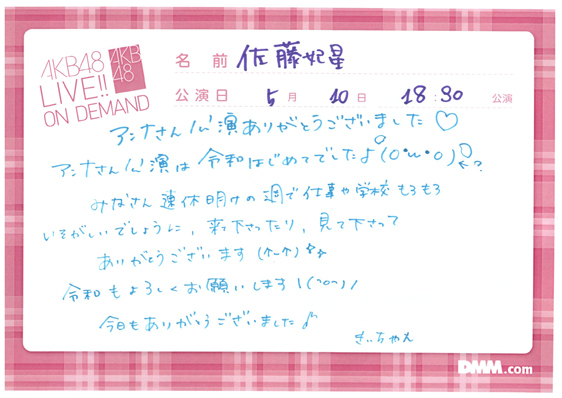 AKB48
LIVE!!
ON DEMAND
AKB
48
名 前 佐藤妃星
公演日 5月 10日 18:30 公演
アンナさん公演ありがとうございました♡
アンナさん公演は令和はじめてでしたよ(o・ω・o)←?
みなさん連休明けの週で仕事や学校もろもろ
いそがしいでしょうに、来て下さったり、見て下さって
ありがとうございます(^-^)
令和もよろしくお願いします\(^o^)/
今日もありがとうございました♪
きいちゃん
DMM.com